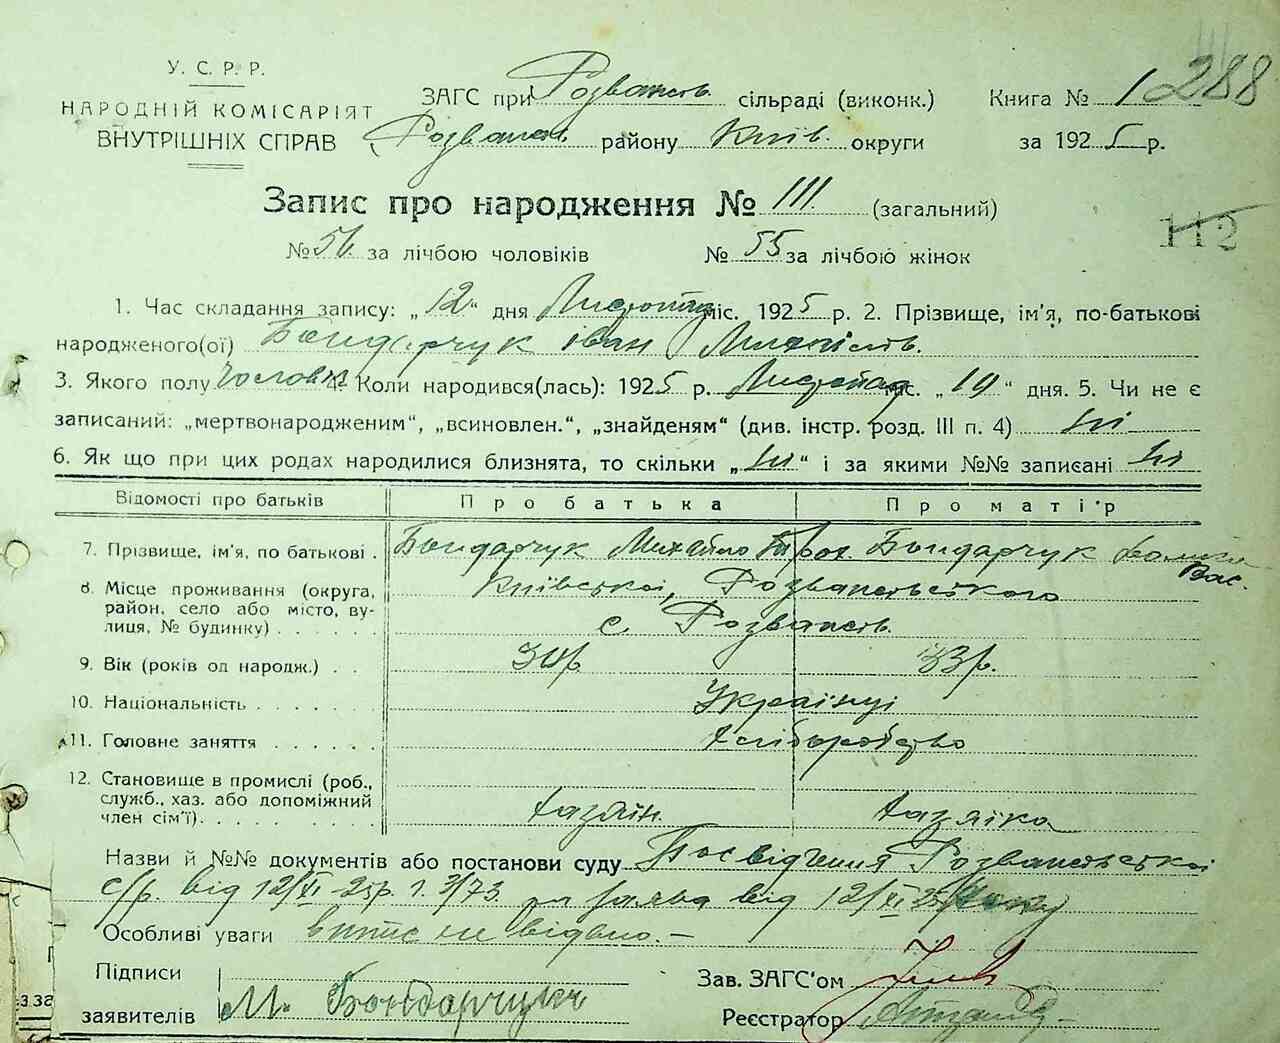 288
У. С. Р. Р.
НАРОДНІЙ КОМІСАРІЯТ
ВНУТРІШНІХ СПРАВ
ЗАГС при Розважів. сільраді (виконк.) Книга № 1
Розважів району Київ. округи за 1925 р.
Запис про народження № 111. (загальний)
112
№ 56 за лічбою чоловіків № 55 за лічбою жінок
1. Час складання запису: „12" дня Листопад міс. 1925 р. 2. Прізвище, ім'я, по-батькові
народженого(ої) Бондарчук Іван Михайлів.
3. Якого полу Чоловік 4. Коли народився(лась): 1925 р. Листопад міс. „10" дня. 5. Чи не є
записаний: „мертвонародженим", „всиновлен.", „знайденям" (див. інстр. розд. III п. 4) ні
6. Як що при цих родах народилися близнята, то скільки „ні" і за якими №№ записані ні
Відомості про батьків Про батька Про матір
7. Прізвище, ім'я, по батькові . Бондарчук Михайло Бондарчук Вас.
8. Місце проживання (округа, район, село або місто, вулиця, № будинку) . . . . . Київської, Розважівського
с Розважів.
9. Вік (років од народж.) . . 30 р. 33 р.
10. Національність . . . . . . Українці
11. Головне заняття . . . . . . Хліборобство
12. Становище в промислі (роб., служб., хаз. або допоміжний член сім'ї). . . . . . . . хазяїн. хазяйка
Назви й №№ документів або постанови суду Посвідчення Розважівської
с/р. від 12/XI-25р. 1. 3/73. заява від 12/XI 25
Особливі уваги випис не відано. –
Підписи
заявителів М. Бондарчук
Зав. ЗАГС'ом
Реєстратор